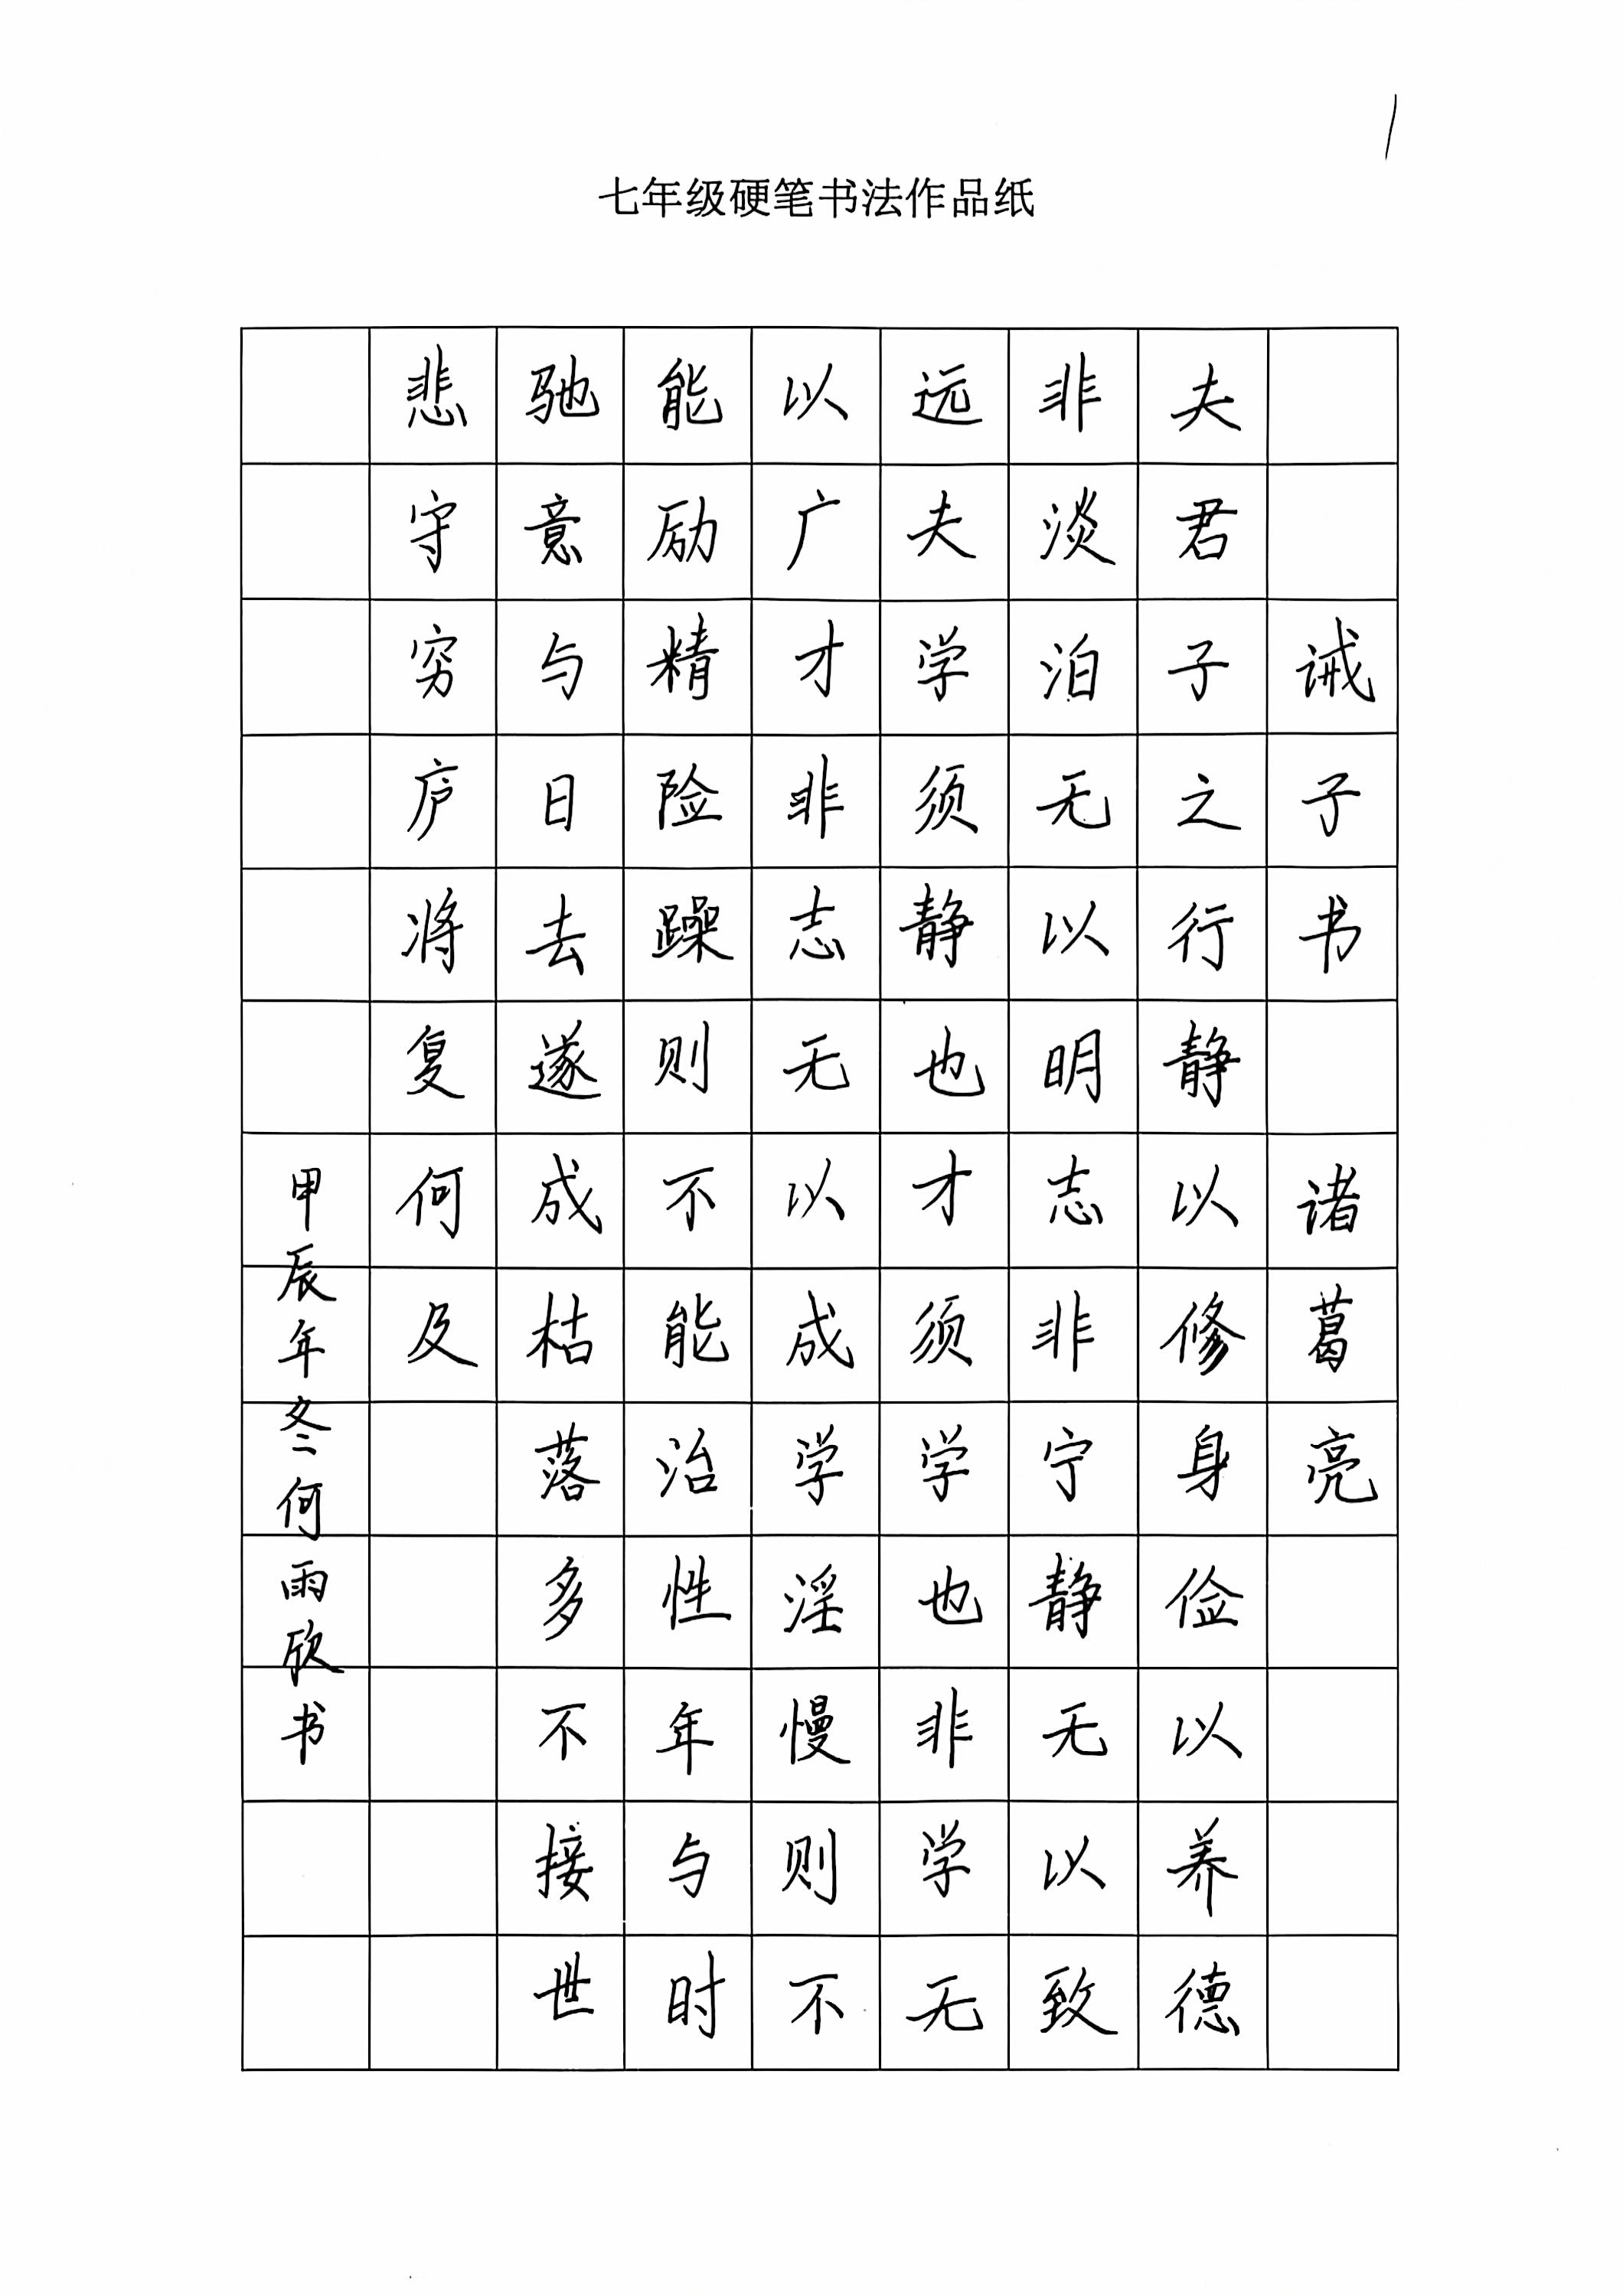 七年级硬笔书法作品纸
诫子书 诸葛亮
夫君子之行静以修身俭以养德
非淡泊无以明志非宁静无以致
远夫学须静也才须学也非学无
以广才非志无以成学淫慢则不
能励精险躁则不能治性年与时
驰意与日去遂成枯落多不接世
悲守穷庐将复何及
甲辰年冬何雨欣书